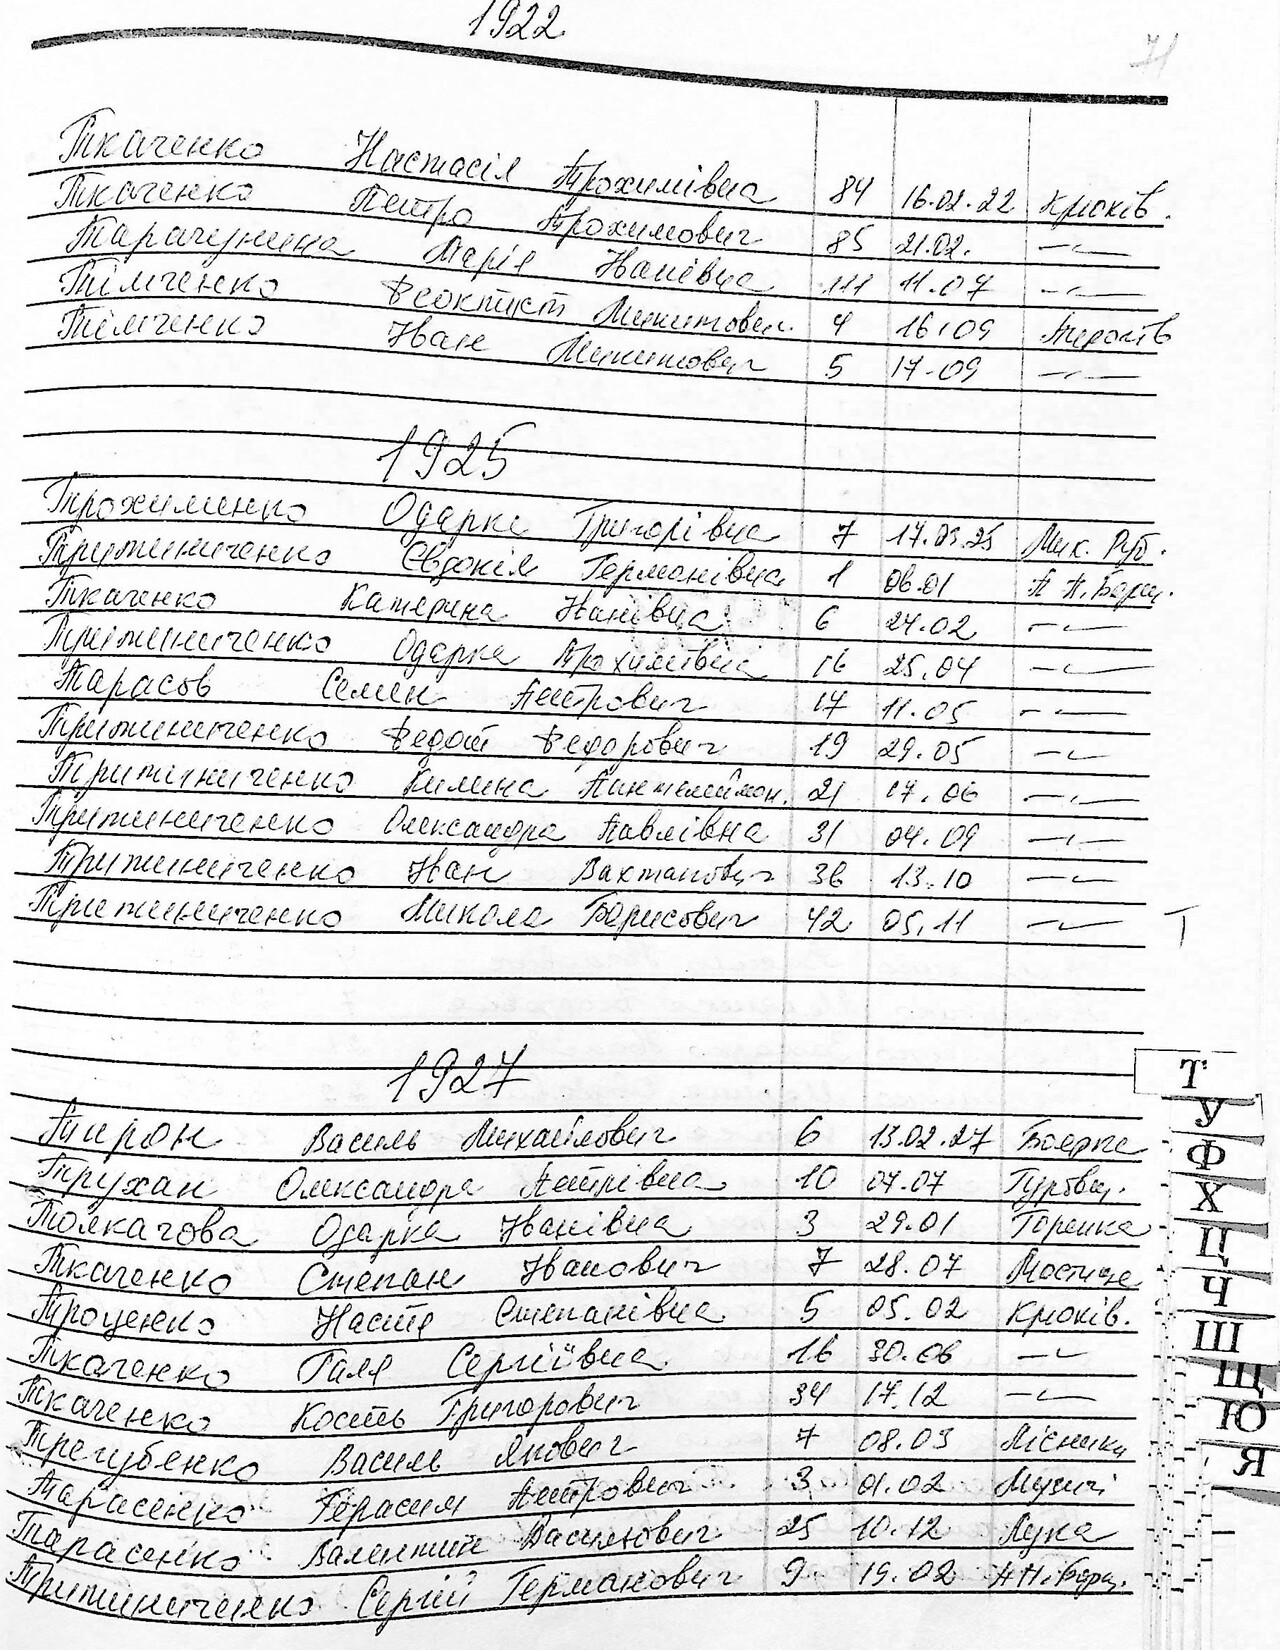 1922
71
Ткаченко Настасія Трохимівна 84 16.02.22 Крюків.
Ткаченко Петро Трохимович 85 21.02. —〃—
Тарачунина Марія Іванівна 111 11.07 —〃—
Тімченко Феоктист Микитович 4 16.09
Тімченко Іван Микитович 5 17-09 —〃—
1925
Трохименко Одарка Григорівна 7 17.03.25 Мик. Руб.
Притиниченко Євдокія Германівна 1 06.01 П. П. Борщ.
Ткаченко Катерина Іванівна 6 24.02 —〃—
Притиниченко Одарка Трохимівна 16 25.04 —〃—
Тарасов Семен Петрович 17 11.05 —〃—
Притиниченко Федот Федорович 19 29.05 —〃—
Притиниченко Килина Пантелеймон. 21 17.06 —〃—
Притиниченко Олександра Павлівна 31 04.09 —〃—
Притиниченко Іван 36 13.10 —〃—
Притиниченко Микола Борисович 42 05.11 —〃—
Т
1927
Тирон Василь Михайлович 6 13.02.27 Боярка
Трухан Олександра Петрівна 10 07.07
Толкачова Одарка Іванівна 3 29.01 Горенка
Ткаченко Степан Іванович 7 28.07 Мостище
Троценко Настя Степанівна 5 05.02 Крюків.
Ткаченко Галя Сергіївна 16 30.06 —〃—
Ткаченко Кость Григорович 34 17.12 —〃—
Трегубенко Василь Якович 7 08.03 Лісники
Тарасенко Герасим Петрович 3 01.02 Музичі
Тарасенко Валентин Васильович 25 10.12 Лука
Притиниченко Сергій Германович 9 19.02 П П. Борщ.
Т
У
Ф
Х
Ц
Ч
Ш
Щ
Ю
Я